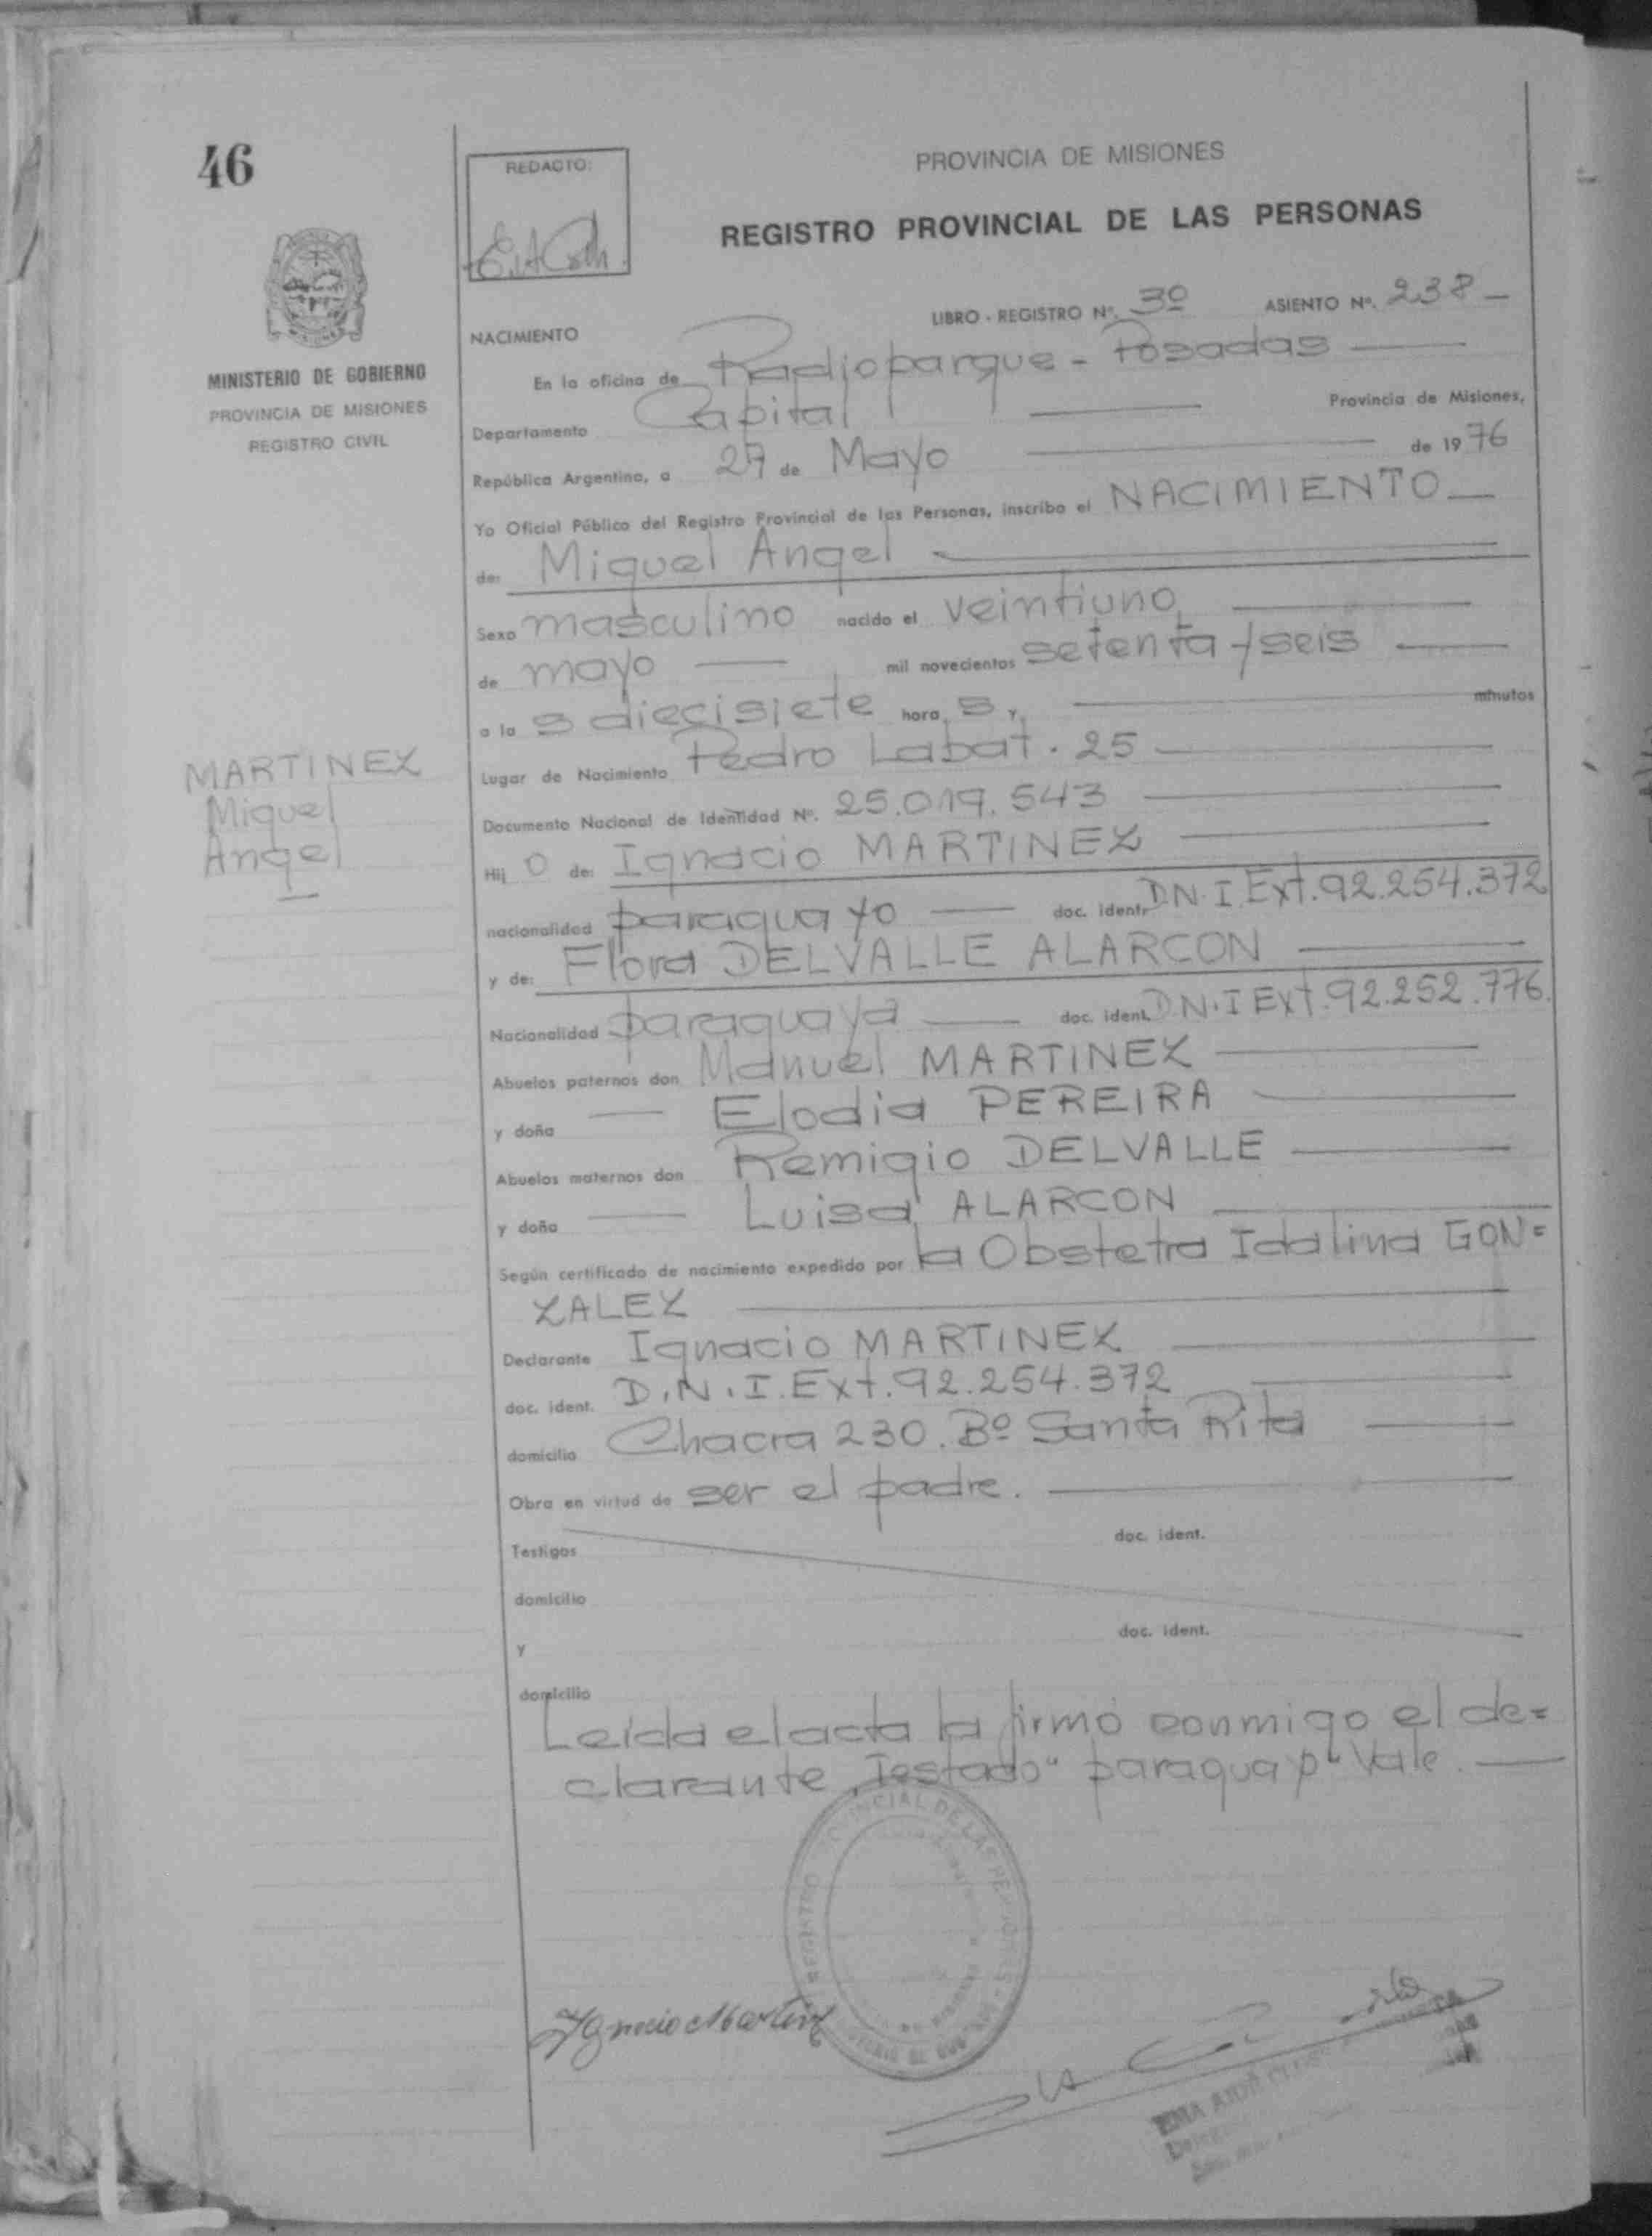 46
REDACTO:
PROVINCIA DE MISIONES
REGISTRO PROVINCIAL DE LAS PERSONAS
LIBRO - REGISTRO Nº. 3º ASIENTO Nº. 238 -
NACIMIENTO
MINISTERIO DE GOBIERNO
PROVINCIA DE MISIONES
REGISTRO CIVIL
En la oficina de Radioparque - Posadas
Departamento Capital Provincia de Misiones,
República Argentina, a 27 de Mayo de 1976
Yo Oficial Público del Registro Provincial de las Personas, inscribo el NACIMIENTO
de: Miguel Angel
Sexo masculino nacido el veintiuno
de mayo mil novecientos setenta y seis
a la s diecisiete hora s y minutos
Lugar de Nacimiento Pedro Labat . 25
MARTINEZ
Miguel
Angel
Documento Nacional de Identidad Nº. 25.019.543
Hij o de: Ignacio MARTINEZ
nacionalidad paraguayo doc. ident. D.N.I. Ext. 92.254.372
y de: Flora DELVALLE ALARCON
Nacionalidad paraguaya doc. ident. D.N.I Ext. 92.252.776.
Abuelos paternos don Manuel MARTINEZ
y doña Elodia PEREIRA
Abuelos maternos don Remigio DELVALLE
y doña Luisa ALARCON
Según certificado de nacimiento expedido por la Obstetra Idalina GON=
ZALEZ
Declarante Ignacio MARTINEZ
doc. ident. D.N.I. Ext. 92.254.372
domicilio Chacra 230. Bº Santa Rita
Obra en virtud de ser el padre.
Testigos doc. ident.
domicilio
y doc. ident.
domicilio
Leída el acta la firmó conmigo el de=
clarante "Testado" paragua p" Vale.
Ignacio Martinez